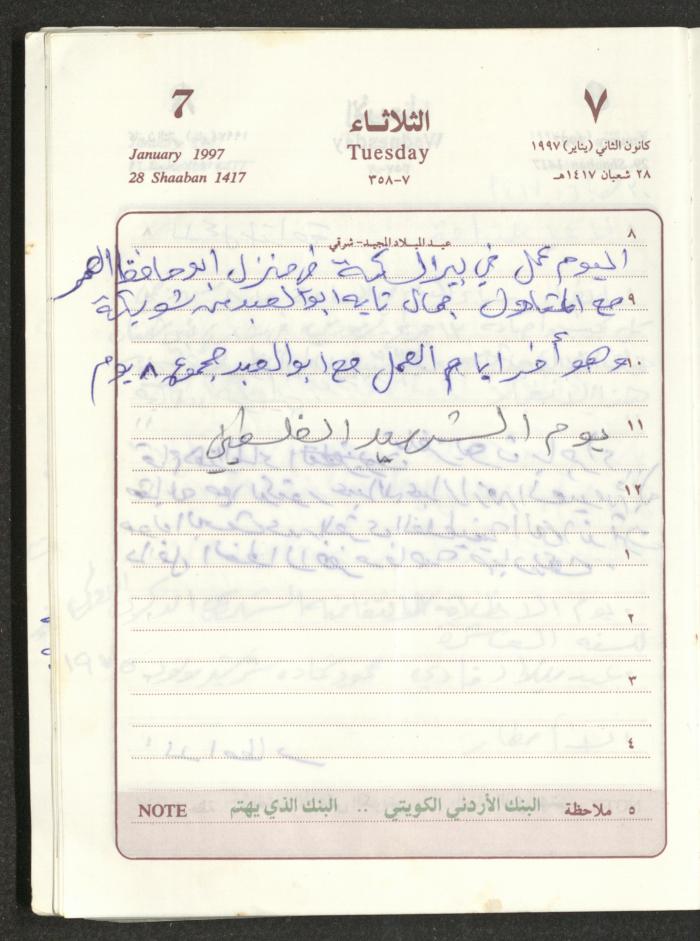 7
٧
الثلاثاء
January 1997
Tuesday
كانون الثاني (يناير) ١٩٩٧
28 Shaaban 1417
٧-٣٥٨
٢٨ شعبان ١٤١٧هـ
٨
٨
عيد الميلاد المجيد-شرقي
اليوم عمل في بير السكة في منزل ابو حافظ العمر
٩ مع المقاول جمال تايه ابو العبد من شويكة
١٠ وهو أخر ايام العمل مع ابو العبد مجموع ٨ يوم
١١ يوم الشهيد الفلسطيني
١٢
١
٢
٣
٤
NOTE البنك الأردني الكويتي .. البنك الذي يهتم ملاحظة ٥